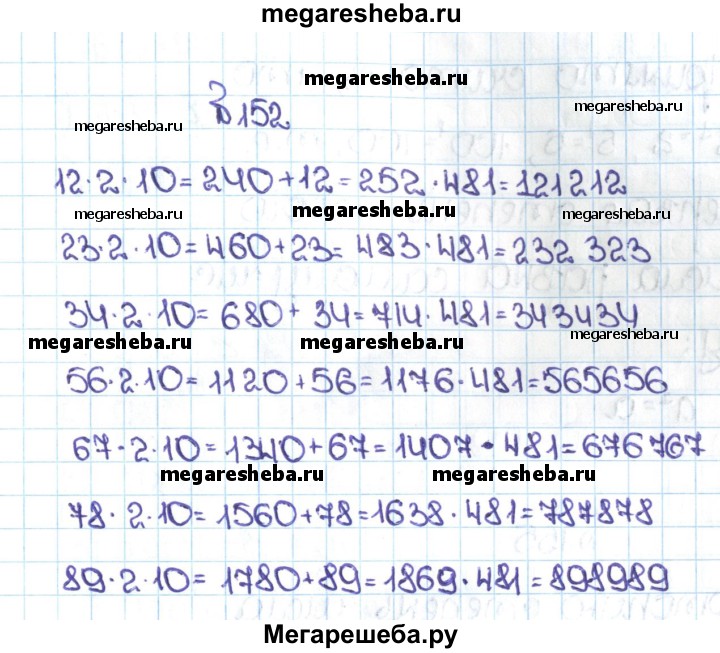 megaresheba.ru
megaresheba.ru
megaresheba.ru
В 152.
megaresheba.ru
12·2·10=240+12=252·481=121212
megaresheba.ru megaresheba.ru megaresheba.ru
23·2·10=460+23=483·481=232 323
34·2·10=680+34=714·481=343434
megaresheba.ru megaresheba.ru megaresheba.ru
56·2·10=1120+56=1176·481=565656
67·2·10=1340+67=1407·481=676767
megaresheba.ru megaresheba.ru
78·2·10=1560+78=1638·481=787878
89·2·10=1780+89=1869·481=898989
Мегарешеба.ру